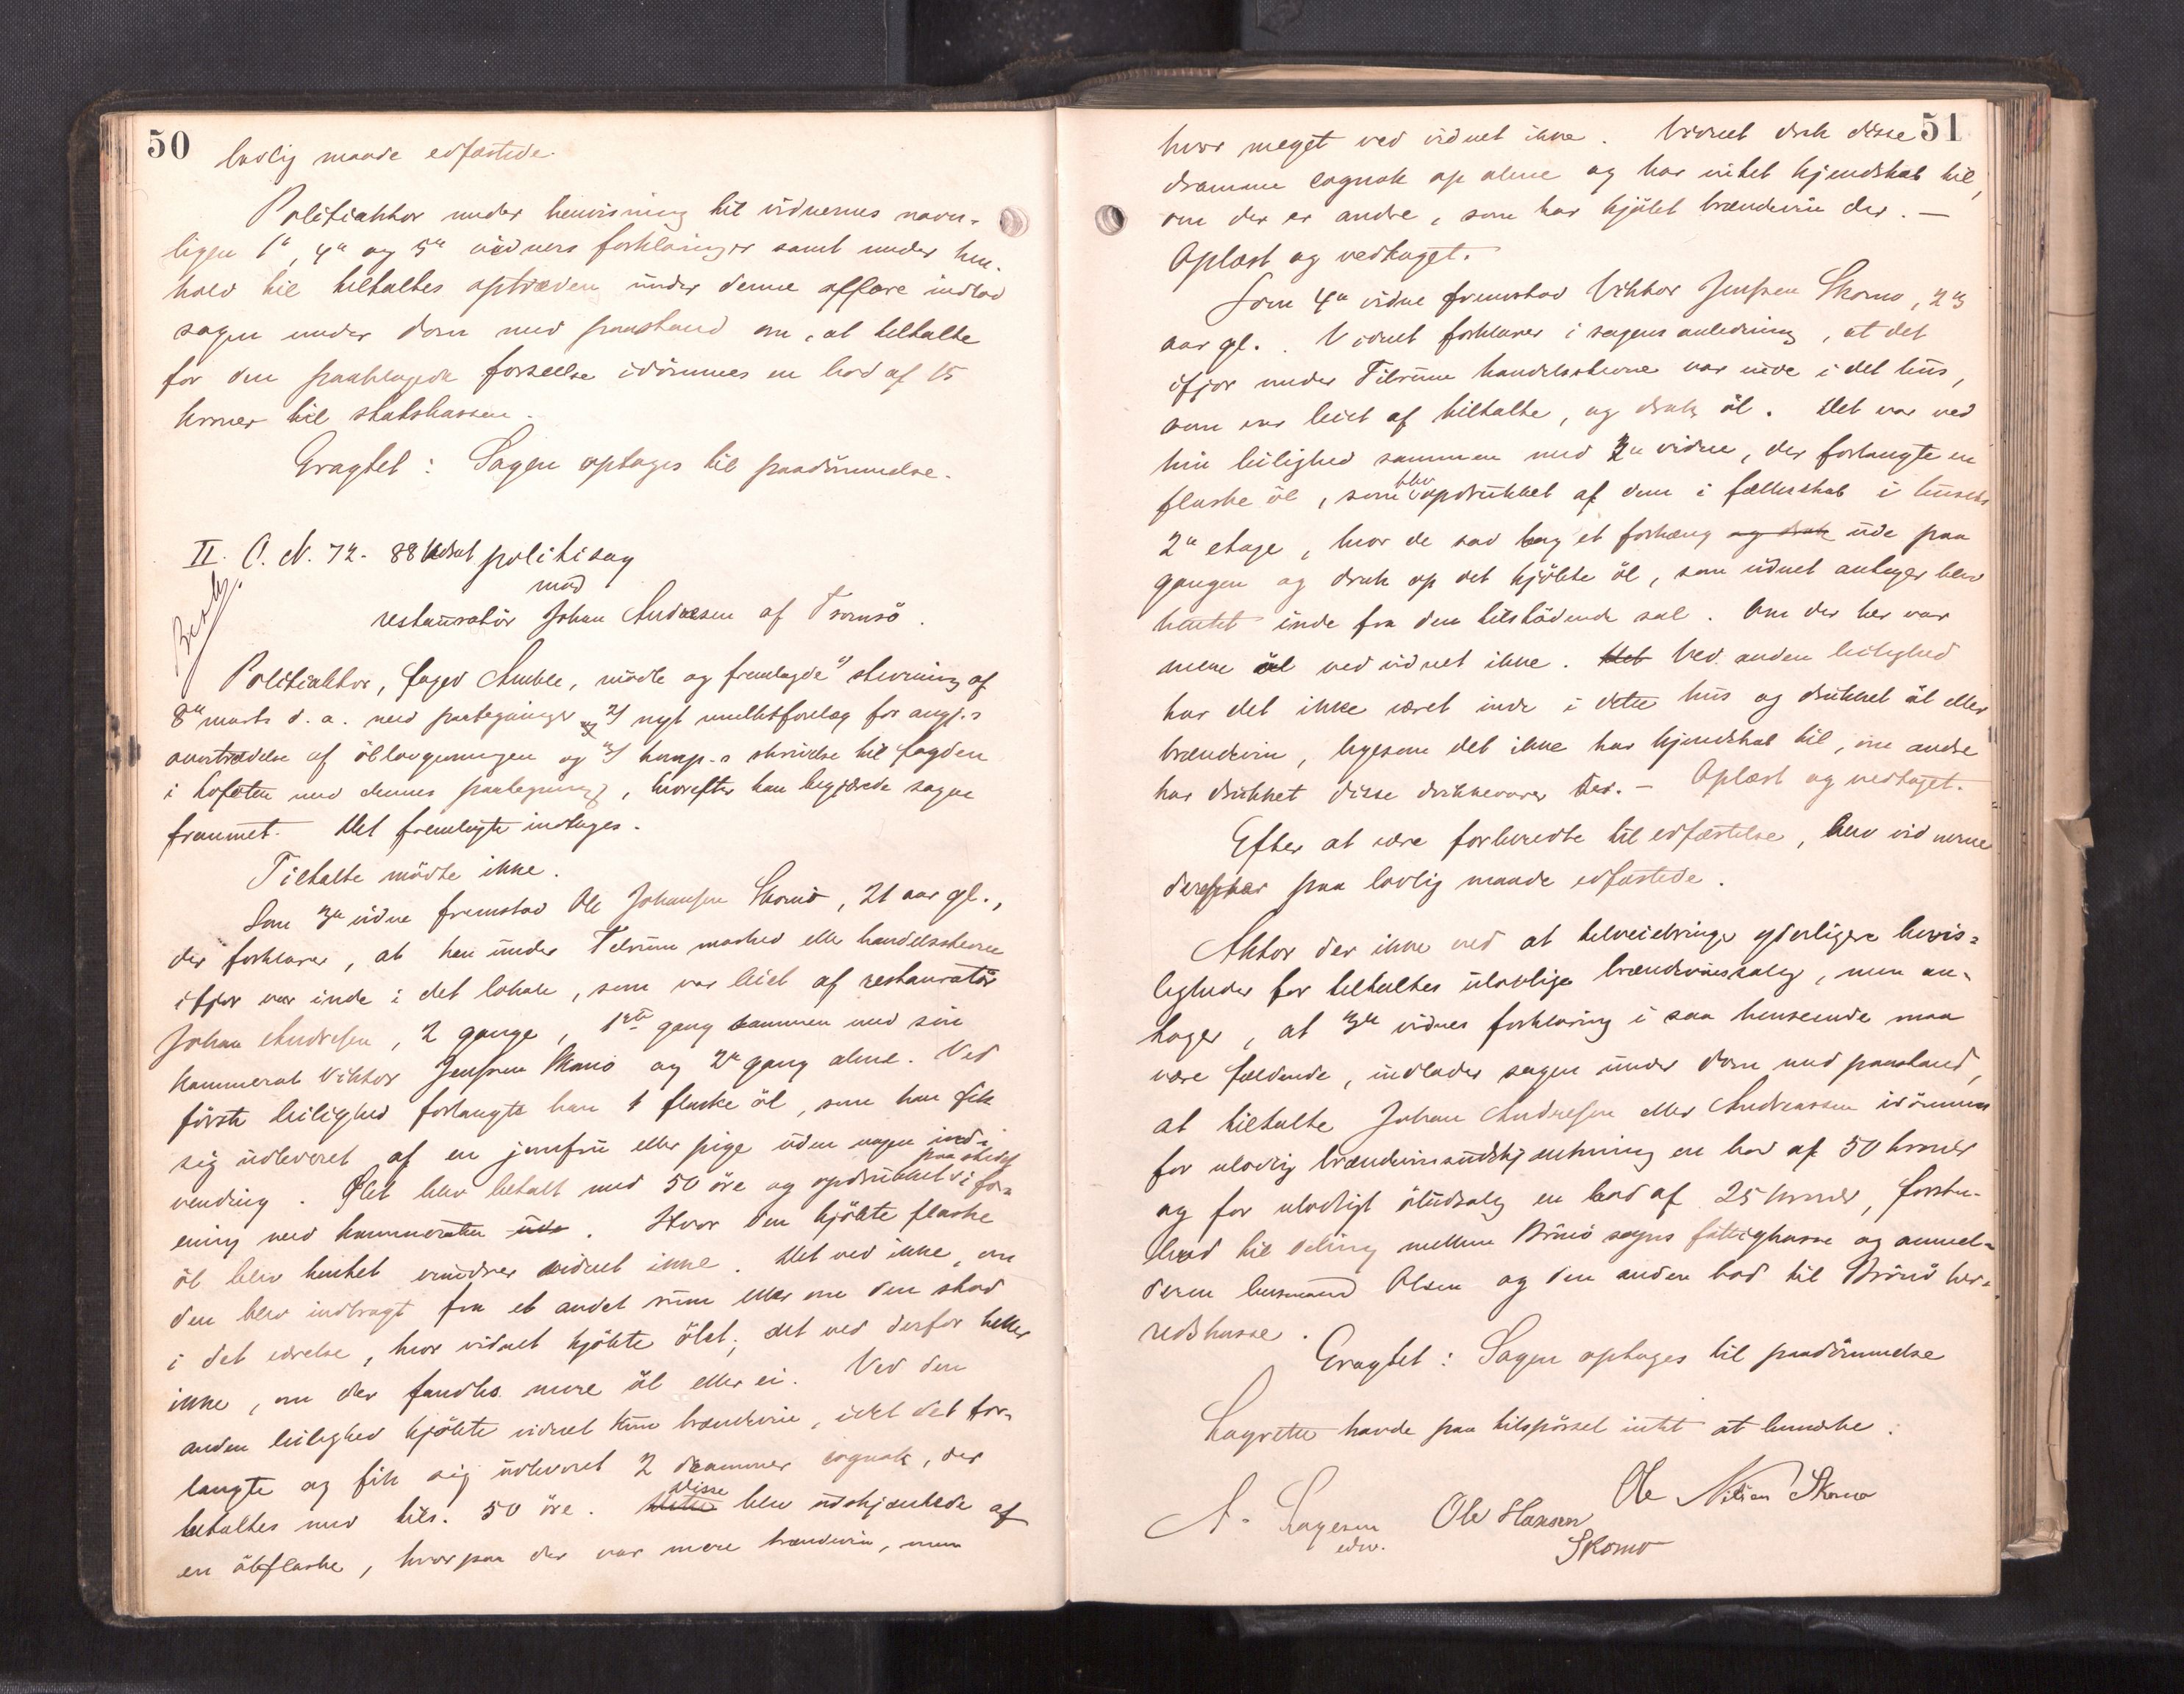 50
lovlig maade edfæstede.
Politiaktor under henvisning til vidnernes navn-
ligen 1ᵉ, 4ᵉ og 5ᵉ vidners forklaringer samt under hen-
hold til tiltaltes optræden under denne affære indlod
sagen under dom med paastand om, at tiltalte
for den paaklagede forseelse idömmes en bod af 15
kroner til statskassen.
Eragtet: Sagen optages til paadömmelse.
II. C. N. 72. 88 Udsat politisag
mod
restauratör Johan Andresen af Tromsö.
Politiaktor, foged Amble, mödte og fremlagde 1) stevning af
8ᵉ marts d. a. med paategninger og 2) nyt mulktforelæg for angj.s
overtrædelse af öllovgivningen og 3) komp.s skrivelse til fogden
i Lofoten med dennes paategning, hvorefter han begjærede sagen
fremmet. Det fremlagte indtages.
Tiltalte mödte ikke.
Som 3ᵉ vidne fremstod Ole Johansen Skomo, 21 aar gl.,
der forklarer, at han under Tilrum marked eller handelsstevne
ifjor var inde i det lokale, som var leiet af restauratör
Johan Andresen, 2 gange, 1ste gang sammen med sin
kammerat Viktor Jensen Skomo og 2ᵉ gang alene. Ved
förste leilighed forlangte han 1 flaske öl, som han fik
sig udleveret af en jomfru eller pige uden nogen ind-
vending. Öllet blev betalt med 50 öre og opdrukket paa stedet i for-
ening med kammeraten ude. Hvor den kjöbte flaske
öl blev hentet erindrer vidnet ikke. Det ved ikke, om
den blev indbragt fra et andet rum eller om den stod
i det værelse, hvor vidnet kjöbte öllet; det ved derfor heller
ikke, om der fandtes mere öl eller ei. Ved den
anden leilighed kjöbte vidnet kun brændevin, idet det for-
langte og fik sig udleveret 2 drammer cognak, der
betaltes med tils. 50 öre. Dette Disse blev udskjænkede af
en ölflaske, hvorpaa der var mere brændevin, men
51
hvor meget ved vidnet ikke. Vidnet drak disse
dramme cognak op alene og har intet kjendskab til,
om der er andre, som har kjöbt brændevin der. —
Oplæst og vedtaget.
Som 4ᵉ vidne fremstod Viktor Jensen Skomo, 23
aar gl. Vidnet forklarer i sagens anledning, at det
ifjor under Tilrum handelsstevne var inde i det hus,
som var leiet af tiltalte, og drak öl. Det var ved
hin leilighed sammen med 3ᵉ vidne, der forlangte en
flaske öl, som blev opdrukket af dem i fællesskab i husets
2ᵉ etage, hvor de sad bag et forhæng og drak ude paa
gangen og drak op det kjöbte öl, som vidnet antager blev
hentet inde fra den tilstödende sal. Om der her var
mere öl ved vidnet ikke. Det Ved anden leilighed
har det ikke været inde i dette hus og drukket öl eller
brændevin, ligesom det ikke har kjendskab til, om andre
har drukket disse drikkevarer der. — Oplæst og vedtaget.
Efter at være forberedte til edfæstelse, blev vidnerne
derefter paa lovlig maade edfæstede.
Aktor der ikke ved at tilveiebringe yderligere bevis-
ligheder for tiltaltes ulovlige brændevinssalg, men an-
tager, at 3ᵉ vidnes forklaring i saa henseende maa
være fældende, indlader sagen under dom med paastand,
at tiltalte Johan Andresen eller Andreassen idömmes
for ulovlig brændevinsudskjænkning en bod af 50 kroner
og for ulovligt öludsalg en bod af 25 kroner, först-
bod til deling mellem Brönö sogns fattigkasse og anmel-
deren lensmand Olsen og den anden bod til Brönö her-
redskasse.
Eragtet: Sagen optages til paadömmelse
Lagrettet havde paa tilspörsel intet at bemærke:
A. Lagesen Ole Hansen Ole Nilsen Skomo
edw. Skomo